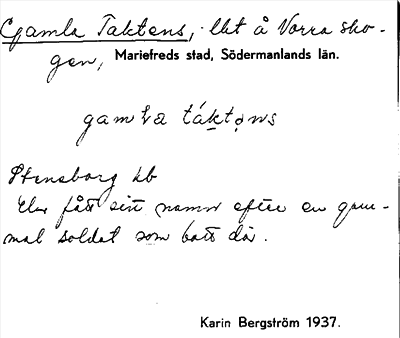 Gamla Taktens, lht å Norra sko-
gen, Mariefreds stad, Södermanlands län.
gamla táktəns
Stensborg kb
Har fått sitt namn efter en gam-
mal soldat som bott där.
Karin Bergström 1937.